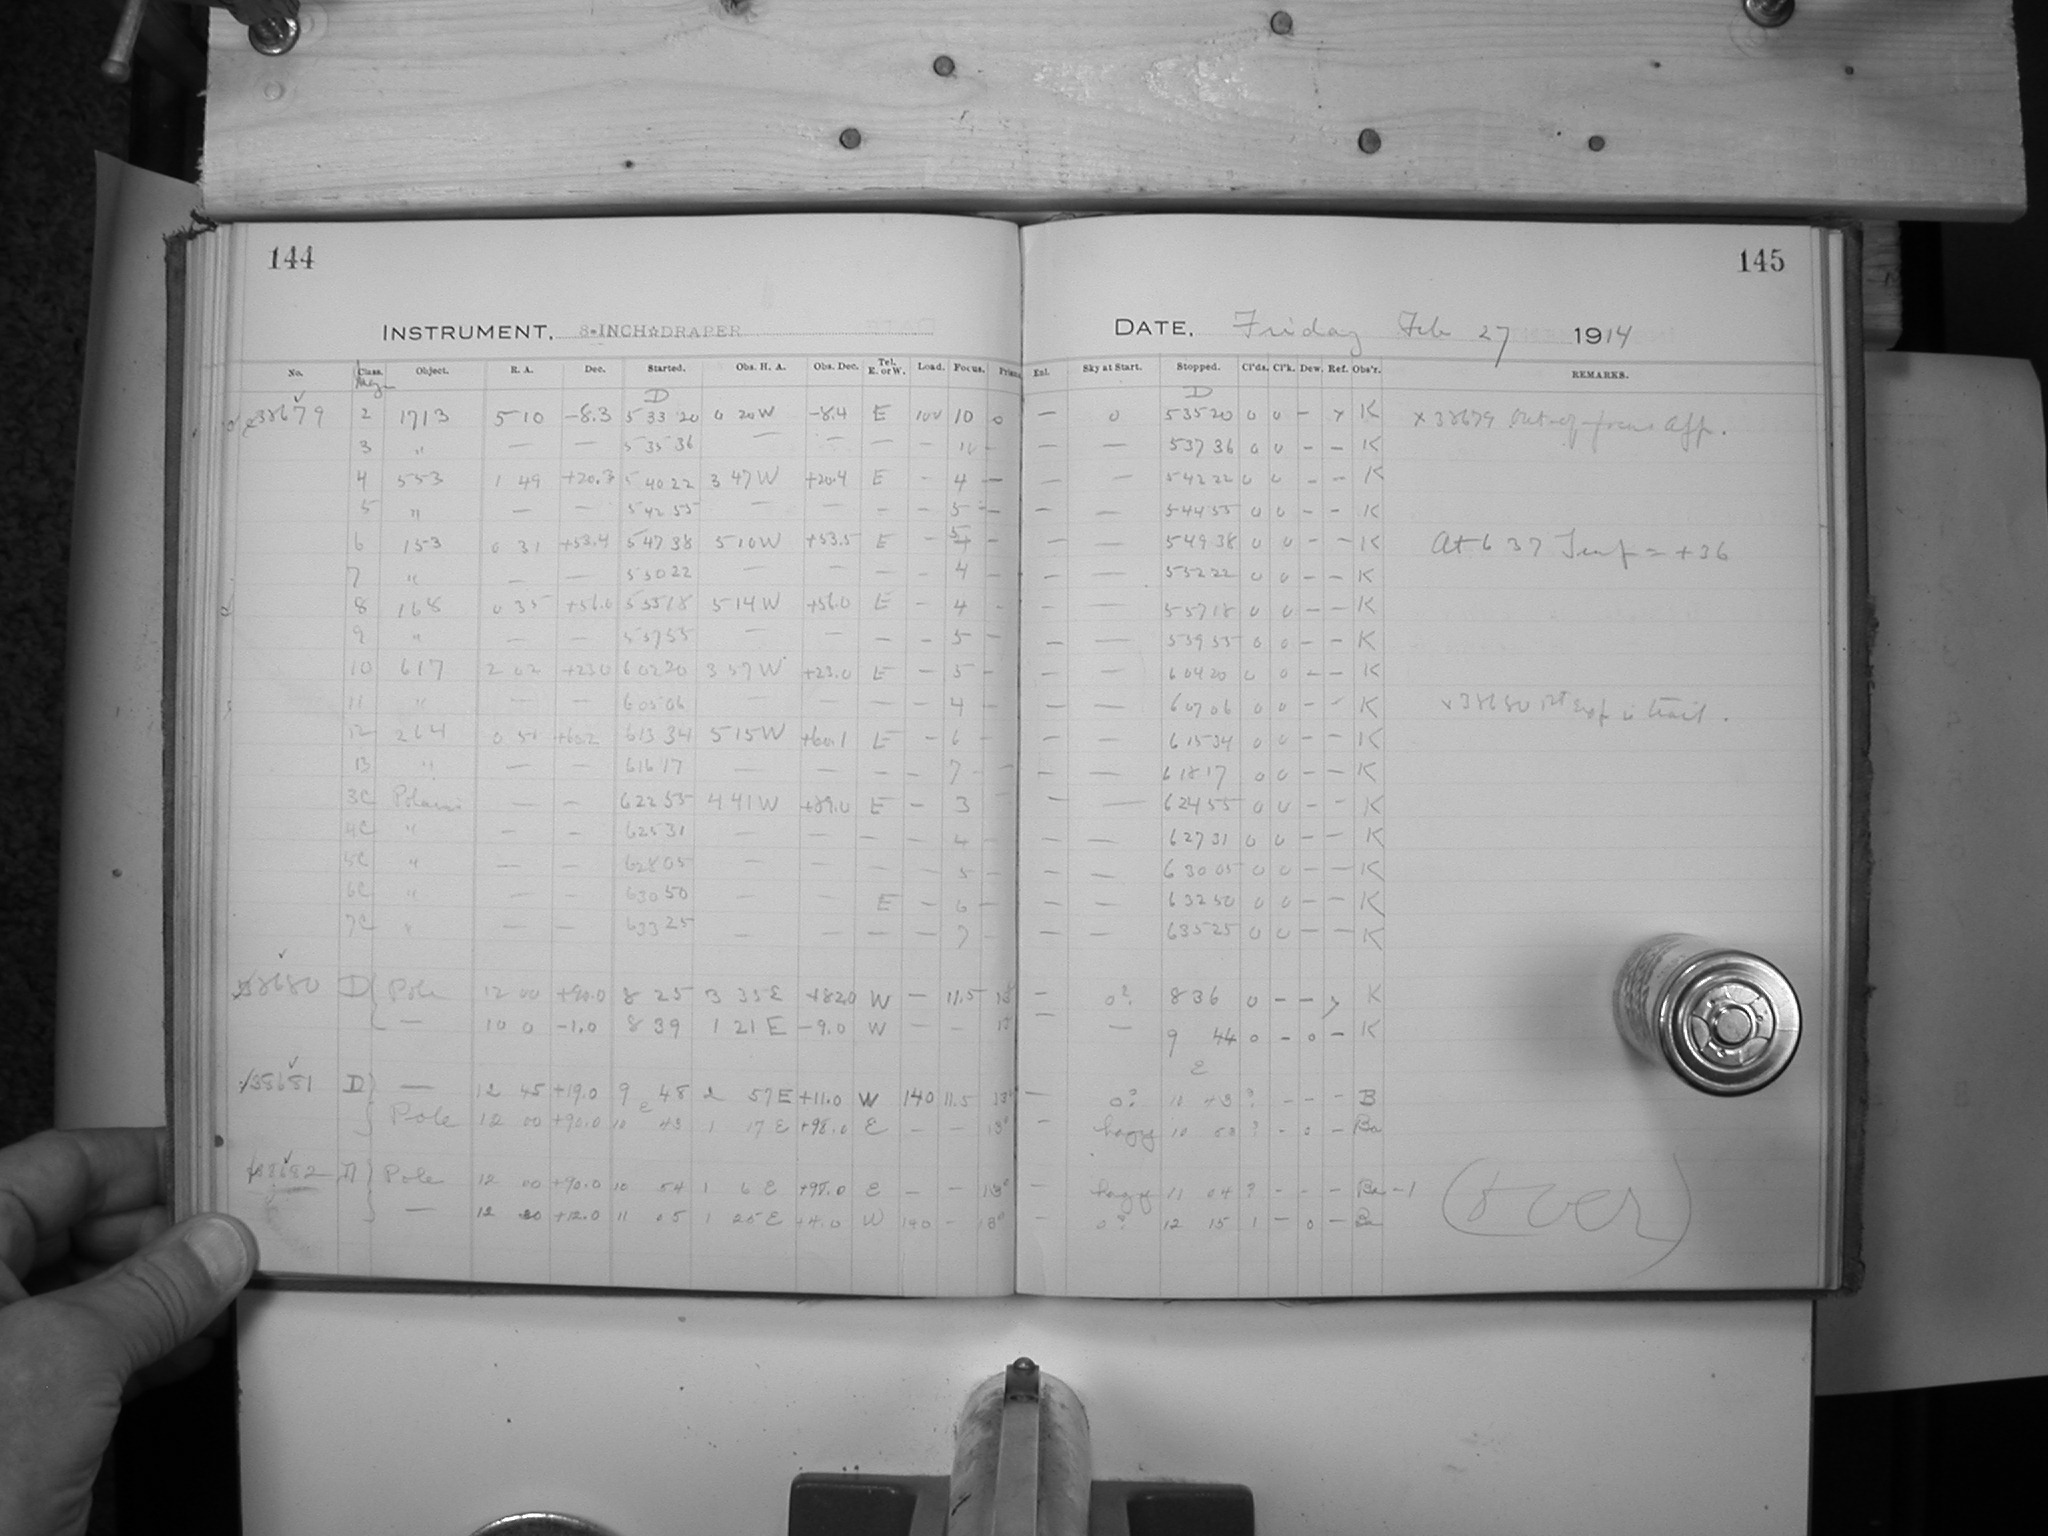 144
INSTRUMENT, 8-INCH☆DRAPER
No. Class. Object. R. A. Dec. Started. Obs. H. A. Obs. Dec. Tel. E. or W. Load. Focus. Prism
D
38679 2 1713 5 10 -8.3 5 33 20 0 20W -8.4 E 100 10 0
3 " — — 5 35 36 — — — —
4 553 1 49 +20.3 5 40 22 3 47W +20.4 E - 4 —
5 " — — 5 42 55 — — — - 5 —
6 153 0 31 +53.4 5 47 38 5 10W +53.5 E - —
7 " — — 5 50 22 — — — - 4 -
8 168 0 35 +56.0 5 55 18 5 14W +56.0 E - 4 -
9 " — — 5 57 55 — — — - 5 -
10 617 2 02 +23.0 6 02 20 3 57W +23.0 E - 5 -
11 " — — 6 05 06 — — — - 4 -
12 264 0 51 +60.2 6 13 34 5 15W +60.1 E - 6 -
13 " — — 6 16 17 — — — - 7 -
3C Polaris — — 6 22 55 4 41W +89.0 E - 3 -
4C " — — 6 25 31 — — — - 4 -
5C " — — 6 28 05 — — — - 5 -
6C " — — 6 30 50 — — E - 6 -
7C " — — 6 33 25 — — — - 7 -
38680 D { Pole 12 00 +90.0 8 25 3 35E +82.0 W — 11.5 13°
— 10 0 -1.0 8 39 1 21E -9.0 W — -
38681 D } — 12 45 +19.0 9 48 2 57E +11.0 W 140 11.5 13°
E
Pole 12 00 +90.0 10 43 1 17E +98.0 E — — 13°
38682 D } Pole 12 00 +90.0 10 54 1 6E +98.0 E — — 13°
— 12 20 +12.0 11 05 1 25E +4.0 W 140 - 13°
145
DATE, Friday Feb 27 1914
Enl. Sky at Start. Stopped. Cl'ds. Cl'k. Dew. Ref. Obs'r. REMARKS.
D
— 0 5 35 20 0 0 - K x 38679 Out-of-focus
— — 5 37 36 0 0 - - K
— — 5 42 22 0 0 - - K
— — 5 44 55 0 0 - - K
— — 5 49 38 0 0 - - K At 6 37 Temp = +36
— — 5 52 22 0 0 - - K
— — 5 57 18 0 0 - - K
— — 5 59 55 0 0 - - K
— — 6 04 20 0 0 - - K
— — 6 07 06 0 0 - - K x 38680 1st exp is trail.
— — 6 15 34 0 0 - - K
— — 6 18 17 0 0 - - K
— — 6 24 55 0 0 - - K
— — 6 27 31 0 0 - - K
— — 6 30 05 0 0 - - K
— — 6 32 50 0 0 - - K
— — 6 35 25 0 0 - - K
— 0? 8 36 0 - - K
— — 9 44 0 - 0 - K
E
— 0? 10 43 ? - - - B
— hazy 10 53 ? - 0 - Ba
— hazy 11 04 ? - - - Ba -1 (Over)
— 0? 12 15 1 - 0 - Ba